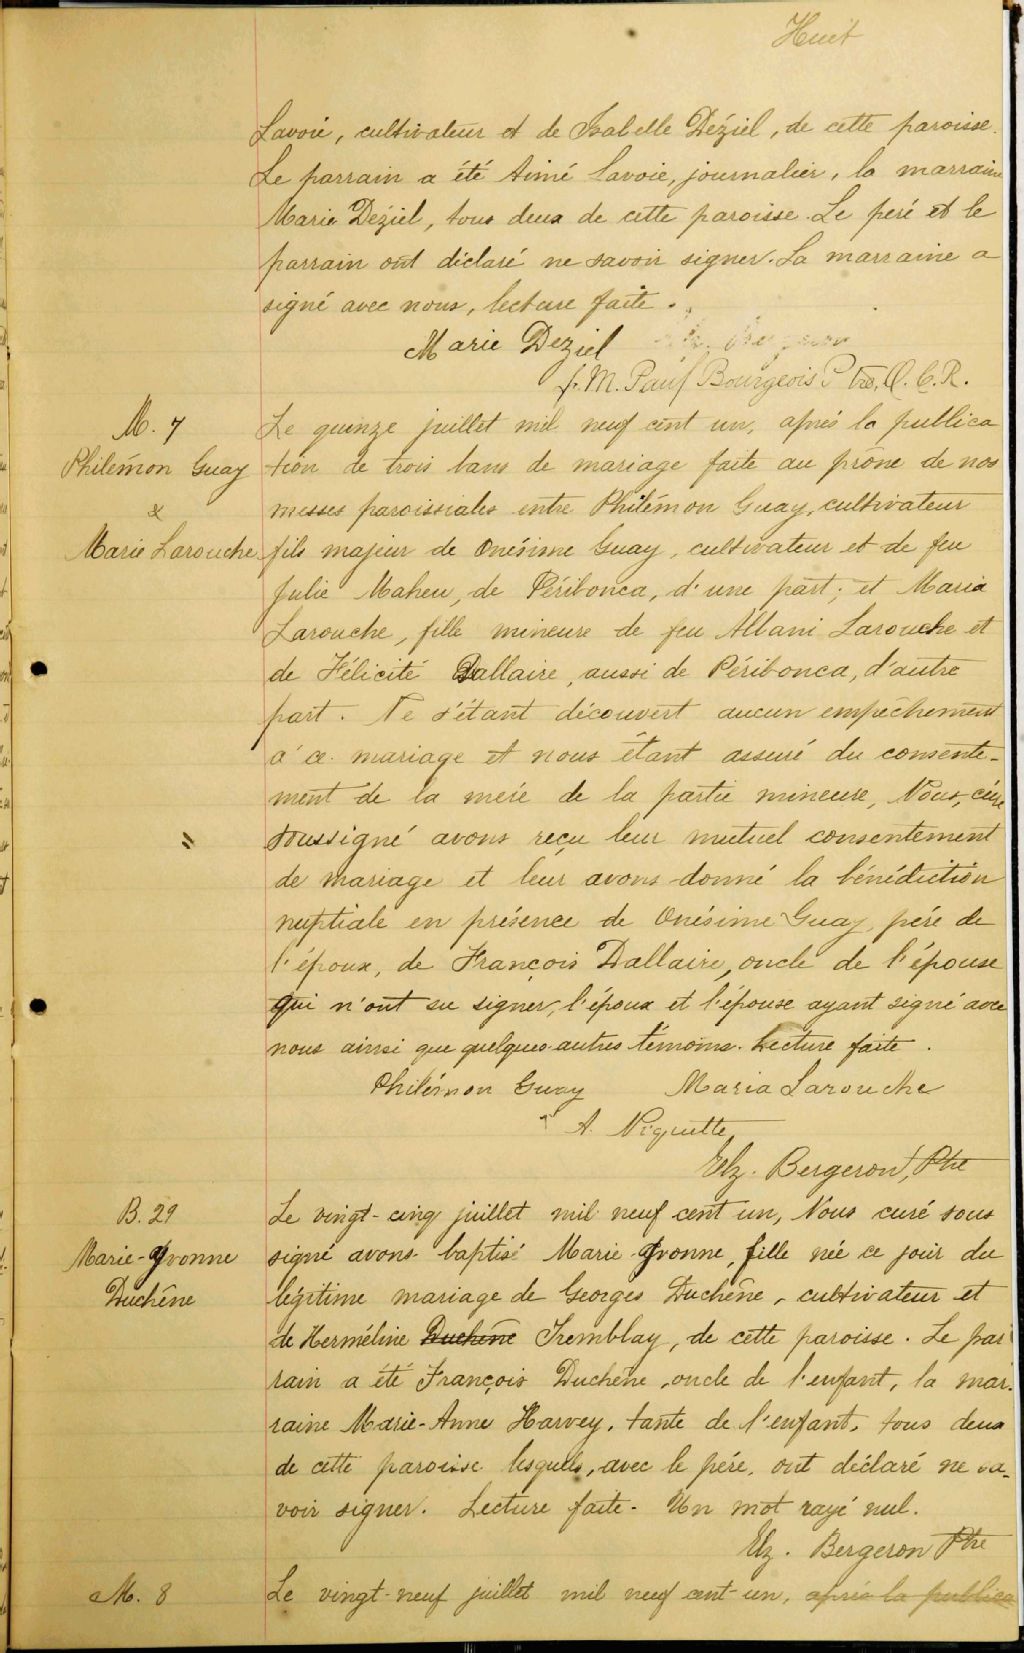 Huit
Lavoie, cultivateur et de Isabelle Déziel, de cette paroisse.
Le parrain a été Aimé Lavoie, journalier, la marraine
Marie Déziel, tous deux de cette paroisse. Le père et le
parrain ont déclaré ne savoir signer. La marraine a
signé avec nous, lecture faite.
Marie Deziel
f. M. Paul Bourgeois Ptre, O. C. R.
M. 7
Philémon Guay
&
Marie Larouche
Le quinze juillet mil neuf cent un, après la publica
tion de trois bans de mariage faite au prône de nos
messes paroissiales entre Philémon Guay, cultivateur
fils majeur de Onésime Guay, cultivateur et de feu
Julie Maheu, de Péribonca, d'une part; et Maria
Larouche, fille mineure de feu Albani Larouche et
de Félicité Dallaire, aussi de Péribonca, d'autre
part. Ne s'étant découvert aucun empêchement
à ce mariage et nous étant assuré du consente-
ment de la mère de la partie mineure, Nous, curé
soussigné avons reçu leur mutuel consentement
de mariage et leur avons donné la bénédiction
nuptiale en présence de Onésime Guay, père de
l'époux, de François Dallaire, oncle de l'épouse
qui n'ont su signer, l'époux et l'épouse ayant signé avec
nous ainsi que quelques autres témoins. Lecture faite.
Philémon Guay Maria Larouche
A. Niquette
Elz. Bergeron, Ptre
B. 29
Marie-Yvonne
Duchêne
Le vingt-cinq juillet mil neuf cent un, Nous curé sous
signé avons baptisé Marie-Yvonne, fille née ce jour du
légitime mariage de Georges Duchêne, cultivateur et
de Herméline Duchêne Tremblay, de cette paroisse. Le par
rain a été François Duchêne, oncle de l'enfant, la mar-
raine Marie-Anne Harvey, tante de l'enfant, tous deux
de cette paroisse lesquels, avec le père, ont déclaré ne sa-
voir signer. Lecture faite. Un mot rayé nul.
Elz. Bergeron Ptre
M. 8
Le vingt-neuf juillet mil neuf cent un, après la publica